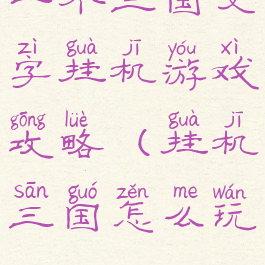 三国文
zì guà jī yóu xì
字挂机游戏
gōng lüè guà jī
攻略（挂机
sān guó zěn me wán
三国怎么玩